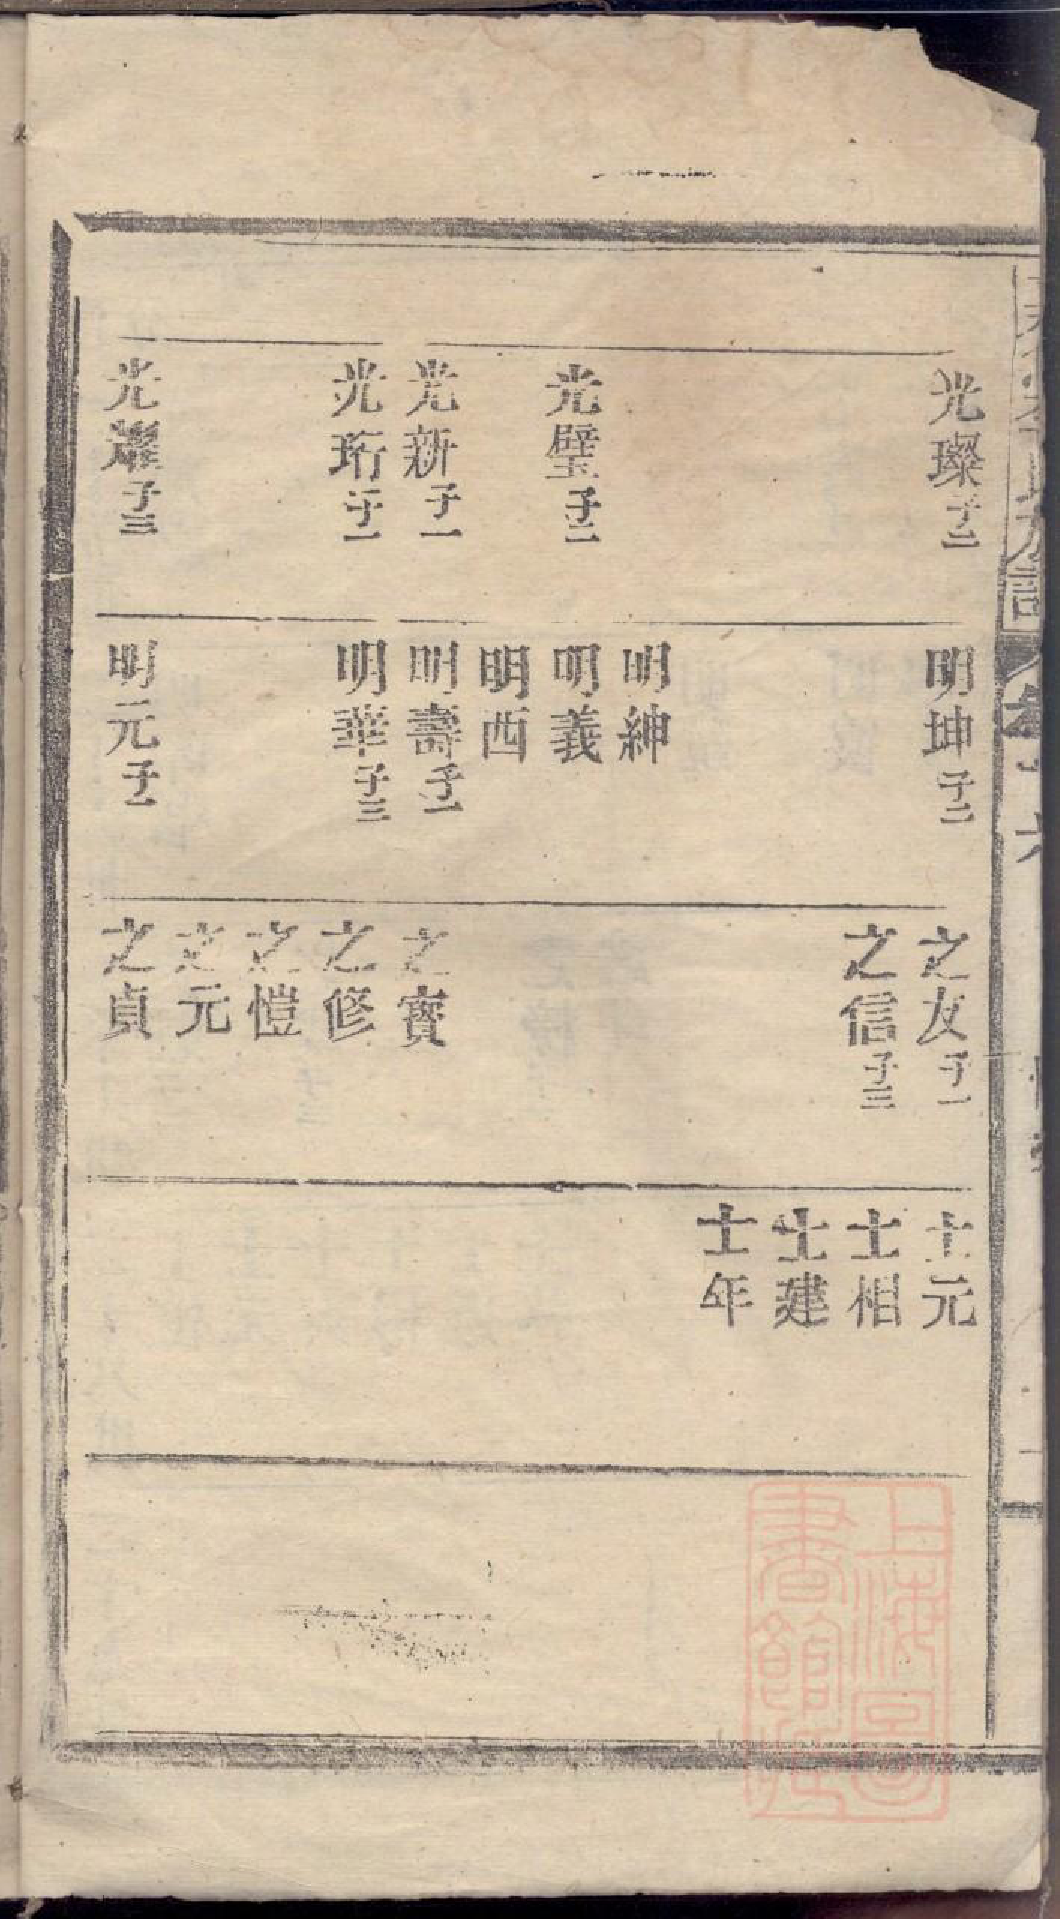 光璨子二
光璧子二
光新子一
光珩子一
光耀子三
明坤子二
明紳
明義
明西
明壽子一
明華子三
明元子一
之友子一
之信子三
之寳
之修
之愷
之元
之貞
士元
士相
士建
士年
上海圖
書館藏